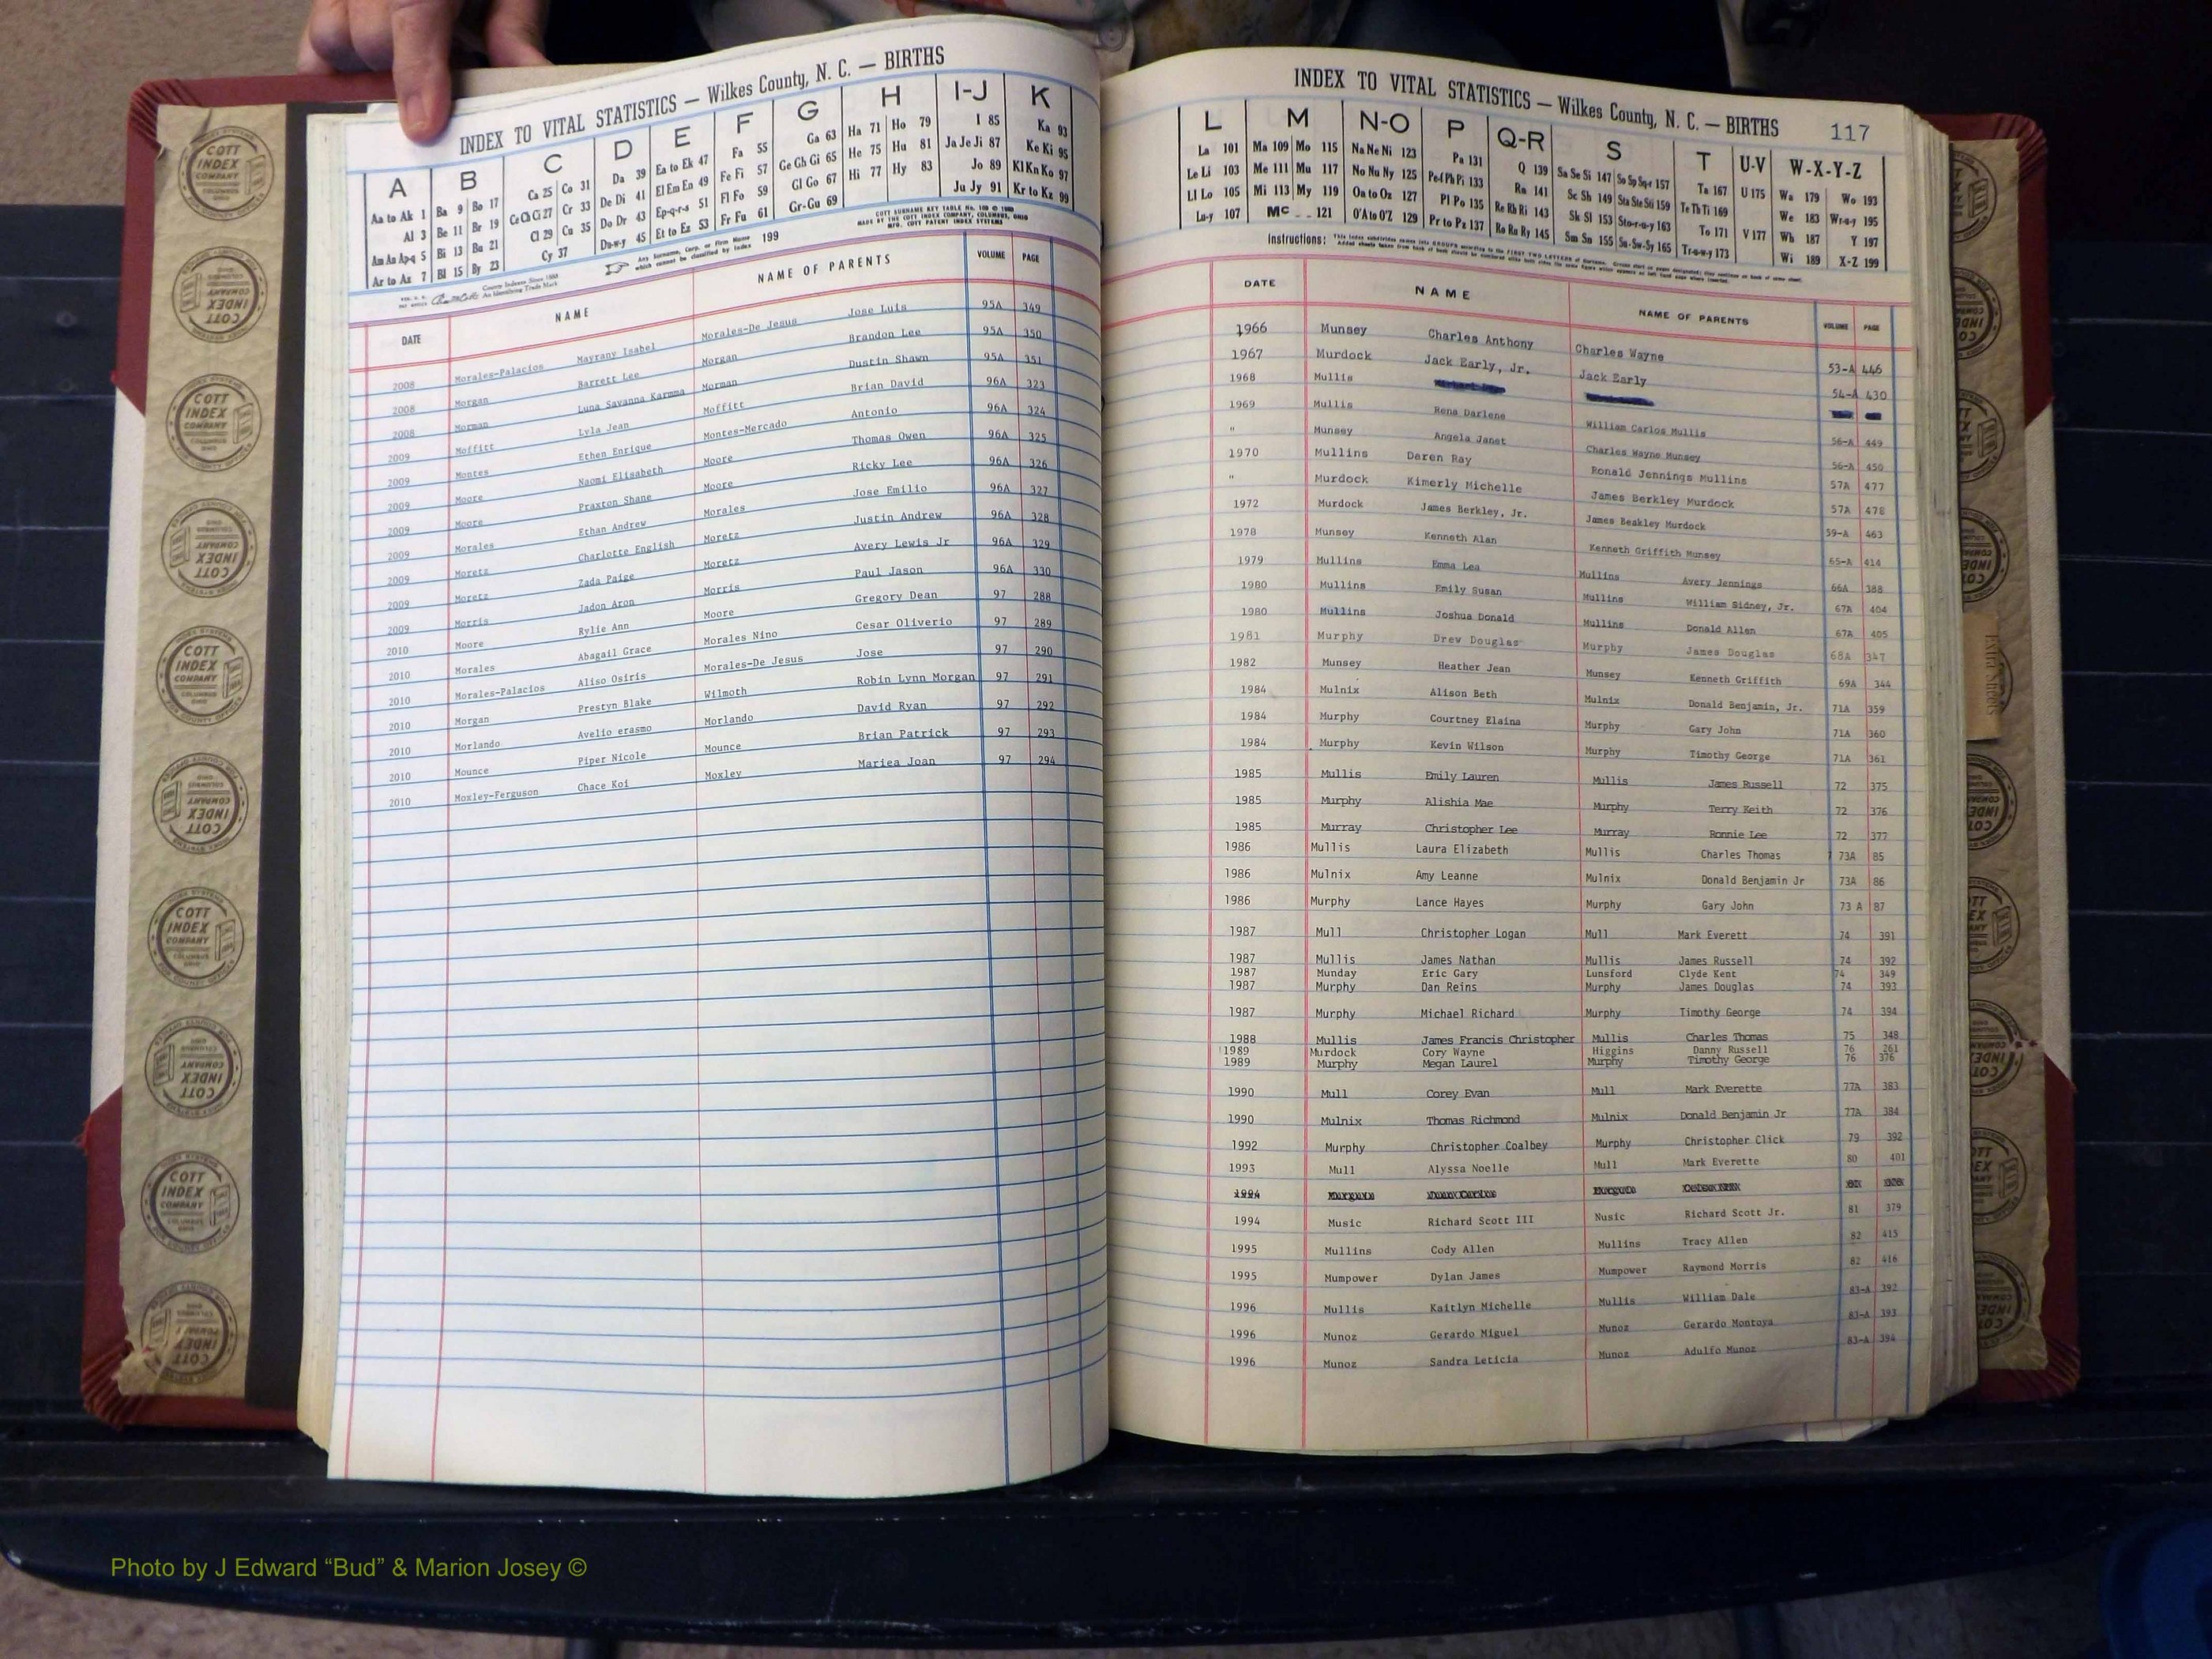 INDEX TO VITAL STATISTICS — Wilkes County, N. C. — BIRTHS
A B C D E F G H I-J K
Aa to Ak 1 Ba 9 Bo 17 Ca 25 Co 31 Da 39 Ea to Ek 47 Fa 55 Ga 63 Ha 71 Ho 79 I 85 Ka 93
Al 3 Be 11 Br 19 Ce Ch Ci 27 Cr 33 De Di 41 El Em En 49 Fe Fi 57 Ge Gh Gi 65 He 75 Hu 81 Ja Je Ji 87 Ke Ki 95
Am An Ap-q 5 Bi 13 Bu 21 Cl 29 Cu 35 Do Dr 43 Ep-q-r-s 51 Fl Fo 59 Gl Go 67 Hi 77 Hy 83 Jo 89 Kl Kn Ko 97
Ar to Az 7 Bl 15 By 23 Cy 37 Du-w-y 45 Et to Ez 53 Fr Fu 61 Gr-Gu 69 Ju Jy 91 Kr to Kz 99
Any Surname, Corp. or Firm Name which cannot be classified by Index 199
DATE NAME NAME OF PARENTS VOLUME PAGE
2008 Morales-Palacios Mayrany Isabel Morales-De Jesus Jose Luis 95A 349
2008 Morgan Barrett Lee Morgan Brandon Lee 95A 350
2008 Morman Luna Savanna Karmma Morman Dustin Shawn 95A 351
2009 Moffitt Lyla Jean Moffitt Brian David 96A 323
2009 Montes Ethen Enrique Montes-Mercado Antonio 96A 324
2009 Moore Naomi Elisabeth Moore Thomas Owen 96A 325
2009 Moore Praxton Shane Moore Ricky Lee 96A 326
2009 Morales Ethan Andrew Morales Jose Emilio 96A 327
2009 Moretz Charlotte English Moretz Justin Andrew 96A 328
2009 Moretz Zada Paige Moretz Avery Lewis Jr 96A 329
2009 Morris Jadon Aron Morris Paul Jason 96A 330
2010 Moore Rylie Ann Moore Gregory Dean 97 288
2010 Morales Abagail Grace Morales Nino Cesar Oliverio 97 289
2010 Morales-Palacios Aliso Osiris Morales-De Jesus Jose 97 290
2010 Morgan Prestyn Blake Wilmoth Robin Lynn Morgan 97 291
2010 Morlando Avelio erasmo Morlando David Ryan 97 292
2010 Mounce Piper Nicole Mounce Brian Patrick 97 293
2010 Moxley-Ferguson Chace Koi Moxley Mariea Joan 97 294
INDEX TO VITAL STATISTICS — Wilkes County, N. C. — BIRTHS 117
L M N-O P Q-R S T U-V W-X-Y-Z
La 101 Ma 109 Mo 115 Na Ne Ni 123 Pa 131 Q 139 Sa Se Si 147 So Sp Sq-r 157 Ta 167 U 175 Wa 179 Wo 193
Le Li 103 Me 111 Mu 117 No Nu Ny 125 Pe-f Ph Pi 133 Ra 141 Sc Sh 149 Sta Ste Sti 159 Te Th Ti 169 We 183 Wr-u-y 195
Ll Lo 105 Mi 113 My 119 Oa to Oz 127 Pl Po 135 Re Rh Ri 143 Sk Sl 153 Sto-r-u-y 163 To 171 V 177 Wh 187 Y 197
Lu-y 107 Mc 121 O'A to O'Z 129 Pr to Pz 137 Ro Ru Ry 145 Sm Sn 155 Su-Sw-Sy 165 Tr-u-w-y 173 Wi 189 X-Z 199
Instructions:
DATE NAME NAME OF PARENTS VOLUME PAGE
1966 Munsey Charles Anthony Charles Wayne 53-A 446
1967 Murdock Jack Early, Jr. Jack Early 54-A 430
1968 Mullis
1969 Mullis Rena Darlene William Carlos Mullis 56-A 449
" Munsey Angela Janet Charles Wayne Munsey 56-A 450
1970 Mullins Daren Ray Ronald Jennings Mullins 57A 477
" Murdock Kimerly Michelle James Berkley Murdock 57A 478
1972 Murdock James Berkley, Jr. James Beakley Murdock 59-A 463
1978 Munsey Kenneth Alan Kenneth Griffith Munsey 65-A 414
1979 Mullins Emma Lea Mullins Avery Jennings 66A 388
1980 Mullins Emily Susan Mullins William Sidney, Jr. 67A 404
1980 Mullins Joshua Donald Mullins Donald Allen 67A 405
1981 Murphy Drew Douglas Murphy James Douglas 68A 347
1982 Munsey Heather Jean Munsey Kenneth Griffith 69A 344
1984 Mulnix Alison Beth Mulnix Donald Benjamin, Jr. 71A 359
1984 Murphy Courtney Elaina Murphy Gary John 71A 360
1984 Murphy Kevin Wilson Murphy Timothy George 71A 361
1985 Mullis Emily Lauren Mullis James Russell 72 375
1985 Murphy Alishia Mae Murphy Terry Keith 72 376
1985 Murray Christopher Lee Murray Ronnie Lee 72 377
1986 Mullis Laura Elizabeth Mullis Charles Thomas 73A 85
1986 Mulnix Amy Leanne Mulnix Donald Benjamin Jr 73A 86
1986 Murphy Lance Hayes Murphy Gary John 73 A 87
1987 Mull Christopher Logan Mull Mark Everett 74 391
1987 Mullis James Nathan Mullis James Russell 74 392
1987 Munday Eric Gary Lunsford Clyde Kent 74 349
1987 Murphy Dan Reins Murphy James Douglas 74 393
1987 Murphy Michael Richard Murphy Timothy George 74 394
1988 Mullis James Francis Christopher Mullis Charles Thomas 75 348
1989 Murdock Cory Wayne Higgins Danny Russell 76 261
1989 Murphy Megan Laurel Murphy Timothy George 76 376
1990 Mull Corey Evan Mull Mark Everette 77A 383
1990 Mulnix Thomas Richmond Mulnix Donald Benjamin Jr 77A 384
1992 Murphy Christopher Coalbey Murphy Christopher Click 79 392
1993 Mull Alyssa Noelle Mull Mark Everette 80 401
1994
1994 Music Richard Scott III Nusic Richard Scott Jr. 81 379
1995 Mullins Cody Allen Mullins Tracy Allen 82 415
1995 Mumpower Dylan James Mumpower Raymond Morris 82 416
1996 Mullis Kaitlyn Michelle Mullis William Dale 83-A 392
1996 Munoz Gerardo Miguel Munoz Gerardo Montoya 83-A 393
1996 Munoz Sandra Leticia Munoz Adulfo Munoz 83-A 394
COTT INDEX COMPANY
Photo by J Edward “Bud” & Marion Josey ©